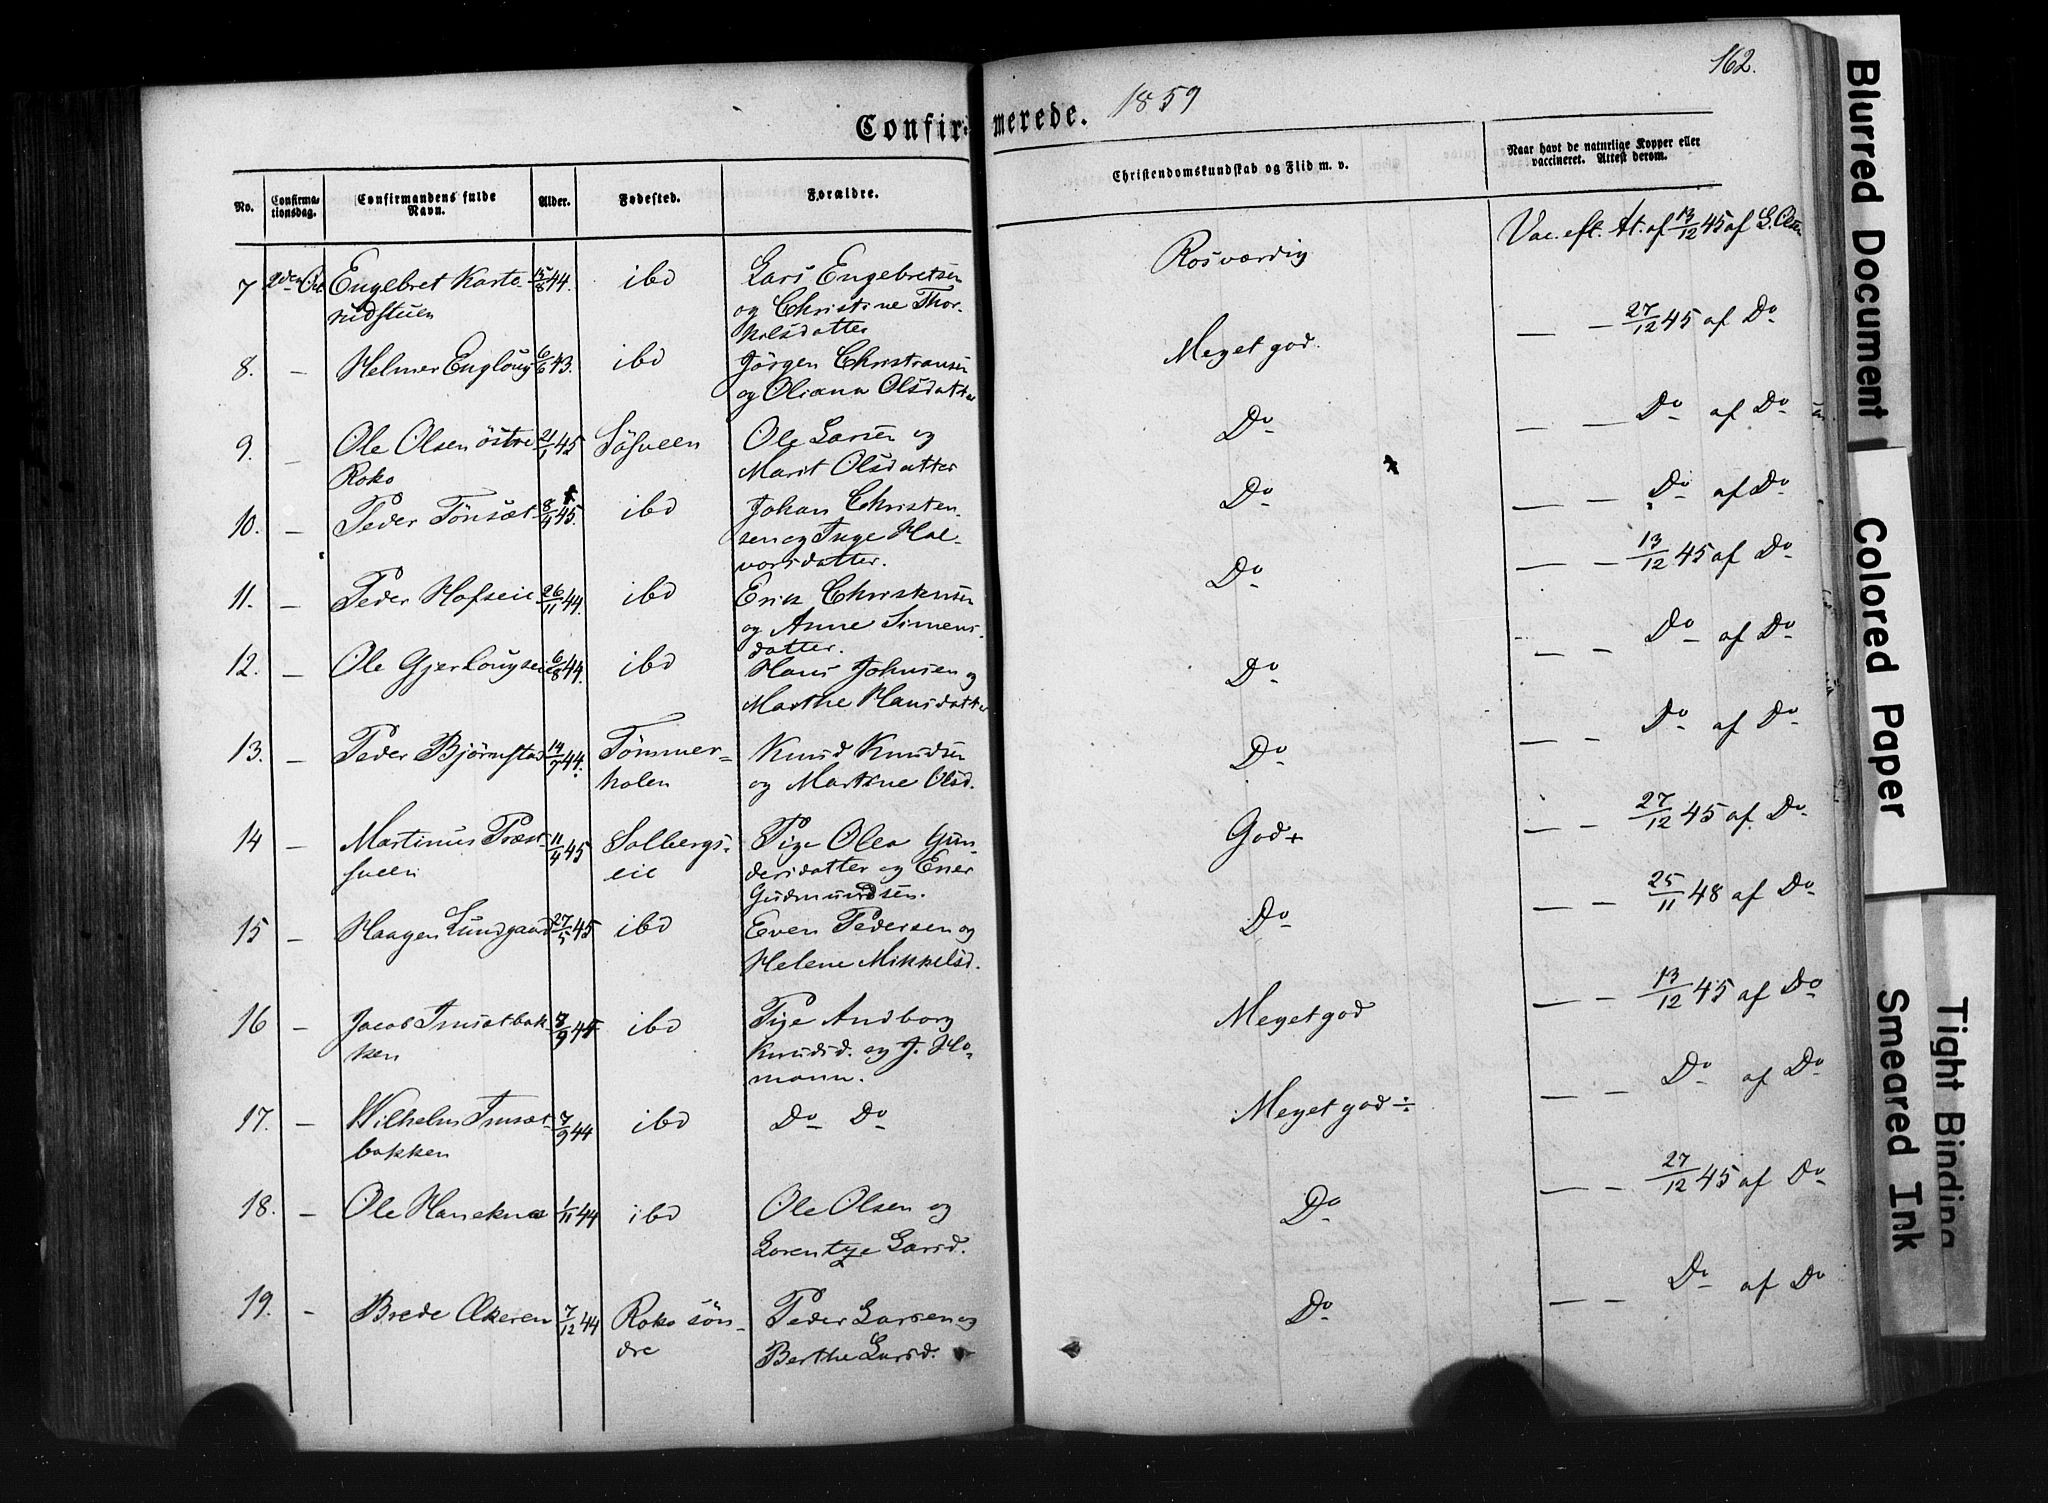 162.
Confirmerede. 1859
No.
Confirmationsdag.
Confirmandens fulde Navn.
Alder.
Fødested.
Forældre.
Christendomskundskab og Flid m. v.
Naar havt de naturlige Kopper eller vaccineret. Attest derom.
7 2den Oct Engebret Karte- 15/8 44. ibd Lars Engebretsen Rosværdig Vac. eft. At. af 13/12 45 af G. Olsen
rudstuen og Christine Thor-
kelsdatter
8. — Helmer Engloug 6/6 43. ibd Jörgen Christiansen Meget god. — — 27/12 45 af Do
og Oliana Olsdatter
9. — Ole Olsen östre 21/1 45 Söfveen Ole Larsen og Do — — Do af Do
Roko Marit Olsdatter
10. — Peder Tönsæt 8/4 45. ibd Johan Christen- Do — — Do af Do
sen og Inge Hal-
vorsdatter.
11. — Peder Hofseie 26/11 44. ibd Erik Christensen Do — — 13/12 45 af Do
og Anne Simens-
datter.
12. — Ole Gjerlougseie 6/8 44. ibd Hans Johnsen og Do — — Do af Do
Marthe Hansdatter
13. — Peder Björnstad 14/7 44. Tömmer- Knud Knudsen Do — — Do af Do
holen og Martine Olsd.
14 — Martinus Præst- 11/4 45 Solbergs- Pige Olea Gun- God + — — 27/12 45 af Do
sveen eie dersdatter og Ener
Gudmundsen.
15 — Haagen Lundgaard 27/5 45 ibd Even Pedersen og Do — — 25/11 48 af Do
Helene Mikkelsd.
16 — Jacob Trusætbak- 7/9 44 ibd Pige Andborg Meget god — — 13/12 45 af Do
ken Knudsd. og J. Ho-
mann.
17. — Wilhelm Trusæt- 7/9 44 ibd Do Do Meget god ÷ — — Do af Do
bakken
18. — Ole Haneknæ 1/11 44 ibd Ole Olsen og Do — — 27/12 45 af Do
Lorentze Larsd.
19. — Brede Ækeren 7/12 44 Roko sön- Peder Larsen og Do — — Do af Do
dre Berthe Larsd.
Blurred Document
Colored Paper
Tight Binding
Smeared Ink